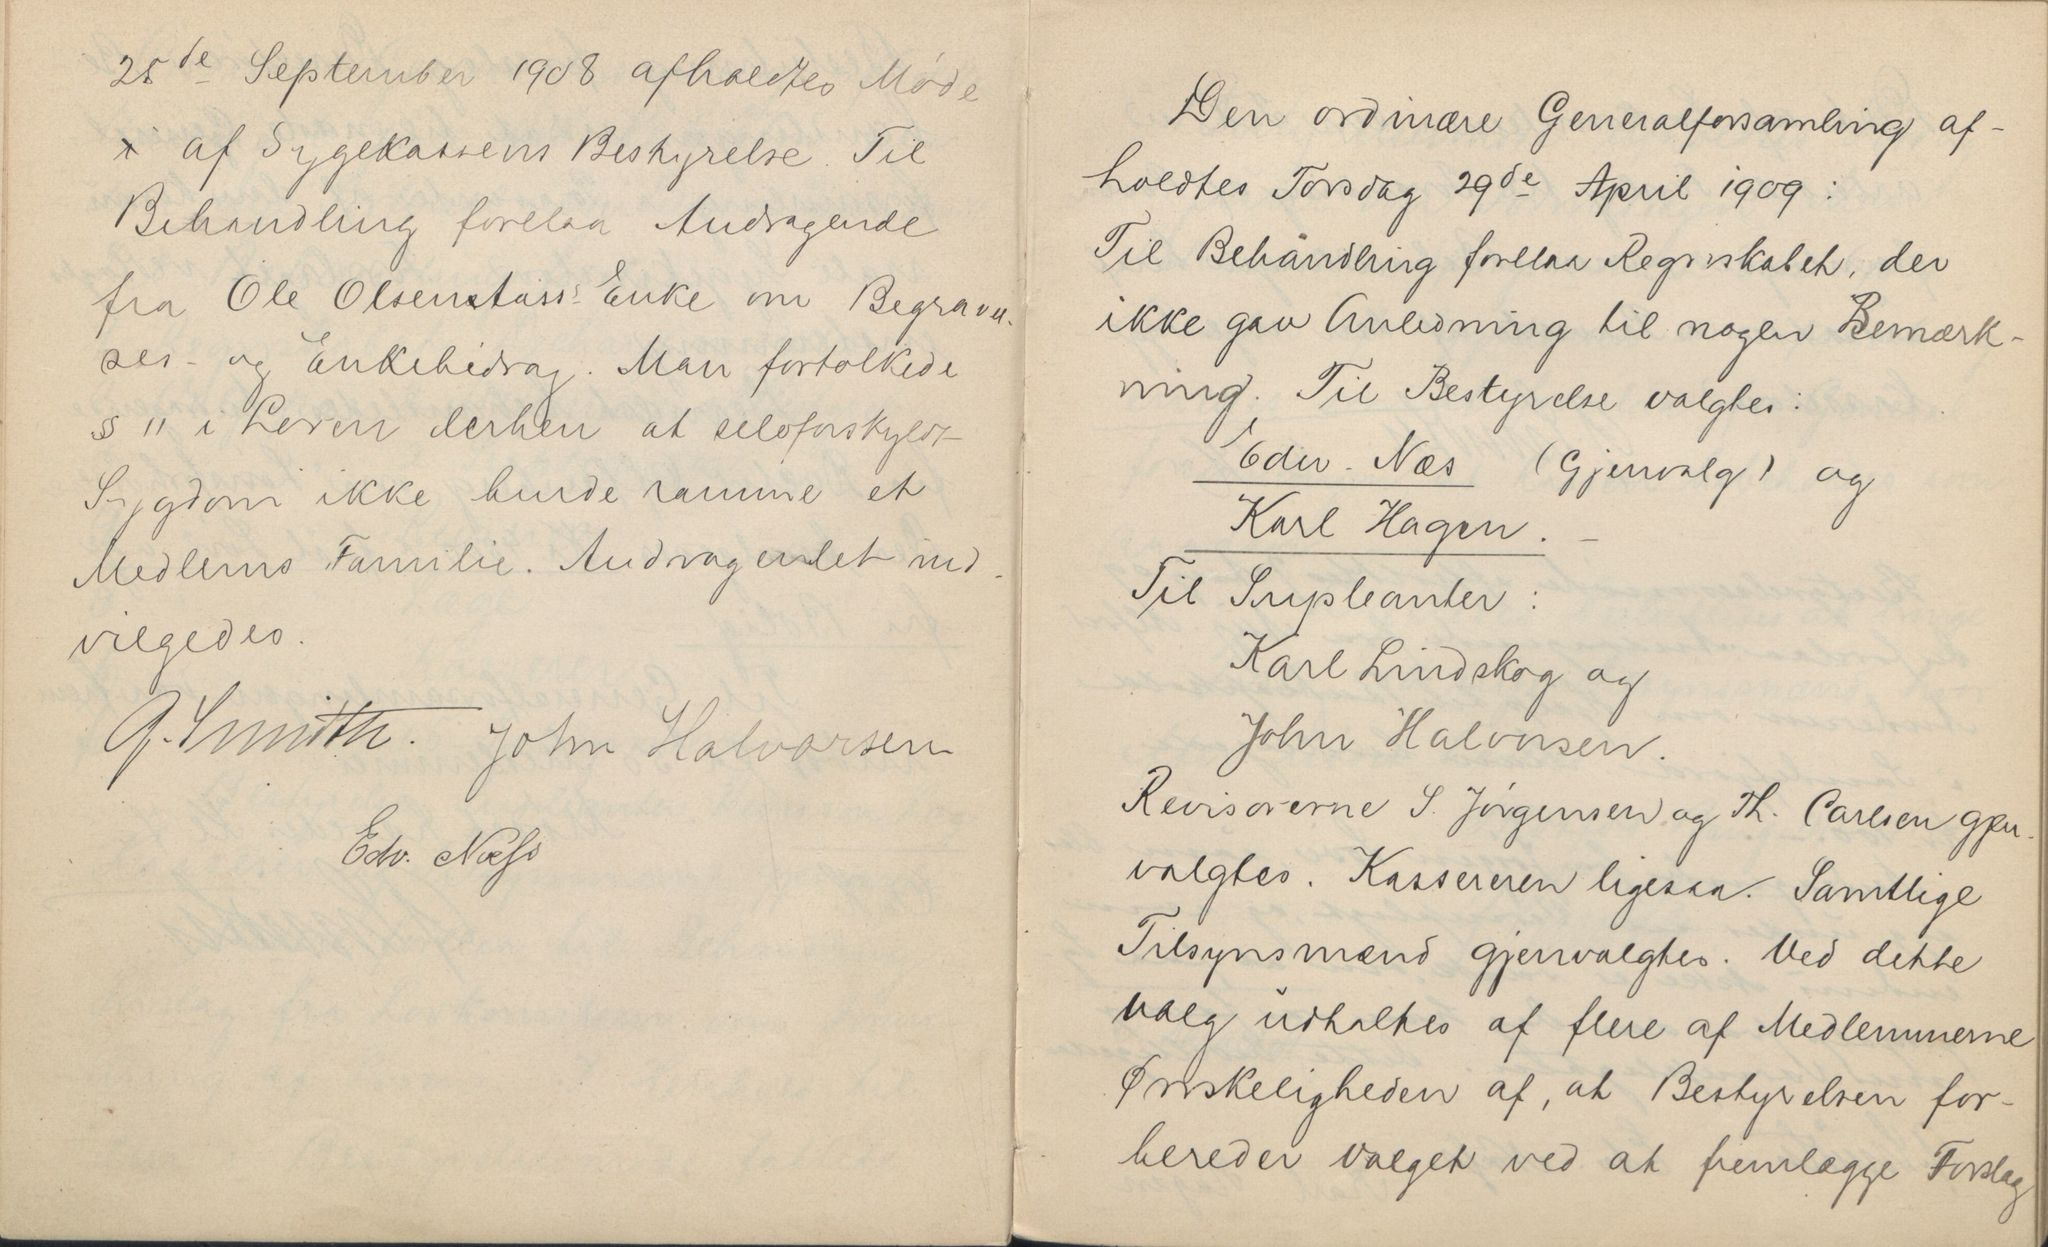 25de September 1908 afholdtes Møde
af Sygekassens Bestyrelse. Til
Behandling forelaa Andragende
fra Ole Olsenstass's Enke om Begravel-
ses- og Enkebidrag. Man fortolkede
§ 11 i Loven derhen at selvforskyldt
Sygdom ikke burde ramme et
Medlems Familie. Andragendet ind-
vilgedes.
G. Smith. John Halvorsen
Edv. Næss
Den ordinære Generalforsamling af-
holdtes Torsdag 29de April 1909:
Til Behandling forelaa Regnskabet, der
ikke gav Anledning til nogen Bemærk-
ning. Til Bestyrelse valgtes:
Edv. Næs (Gjenvalg) og
Karl Hagen. –
Til Supleanter:
Karl Lindskog og
John Halvorsen.
Revisorerne S. Jørgensen og Th. Carlsen gjen-
valgtes. Kassereren ligesaa. Samtlige
Tilsynsmænd gjenvalgtes. Ved dette
Valg udtaltes af flere af Medlemmerne
Ønskeligheden af, at Bestyrelsen for-
bereder Valget ved at fremlægge Forslag